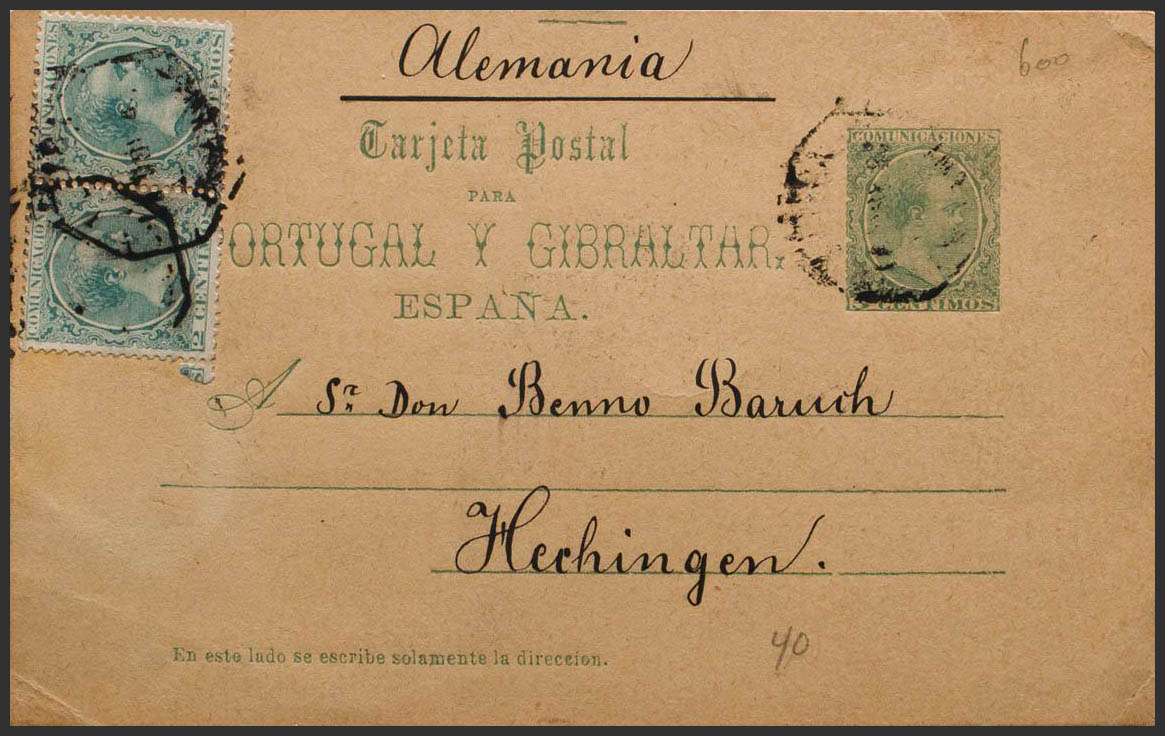 Alemania
600
Tarjeta Postal
PARA
PORTUGAL Y GIBRALTAR,
ESPAÑA.
COMUNICACIONES
5 CENTIMOS
COMUNICACIONES
COMUNICACIO
2 CENTI
A Sr. Don Benno Baruch
Hechingen.
40
En este lado se escribe solamente la direccion.